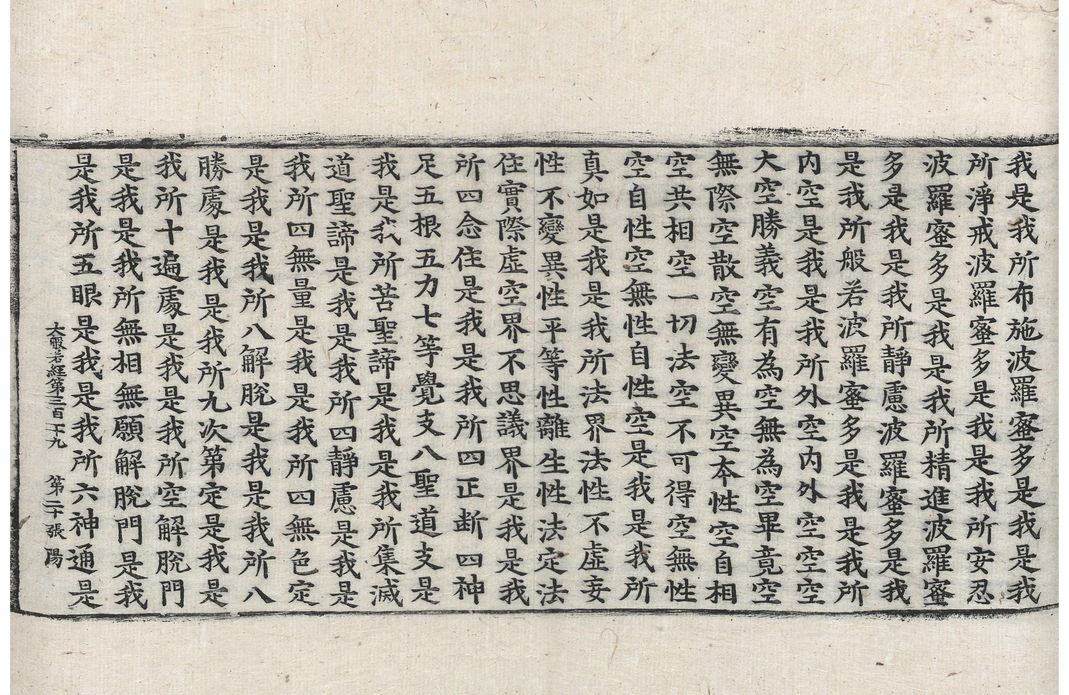 我是我所布施波羅蜜多是我是我
所淨戒波羅蜜多是我是我所安忍
波羅蜜多是我是我所精進波羅蜜
多是我是我所靜慮波羅蜜多是我
是我所般若波羅蜜多是我是我所
內空是我是我所外空內外空空空
大空勝義空有為空無為空畢竟空
無際空散空無變異空本性空自相
空共相空一切法空不可得空無性
空自性空無性自性空是我是我所
真如是我是我所法界法性不虛妄
性不變異性平等性離生性法定法
住實際虛空界不思議界是我是我
所四念住是我是我所四正斷四神
足五根五力七等覺支八聖道支是
我是我所苦聖諦是我是我所集滅
道聖諦是我是我所四靜慮是我是
我所四無量是我是我所四無色定
是我是我所八解脫是我是我所八
勝處是我是我所九次第定是我是
我所十遍處是我是我所空解脫門
是我是我所無相無願解脫門是我
是我所五眼是我是我所六神通是
大般若經第三百二十九 第二十張 陽